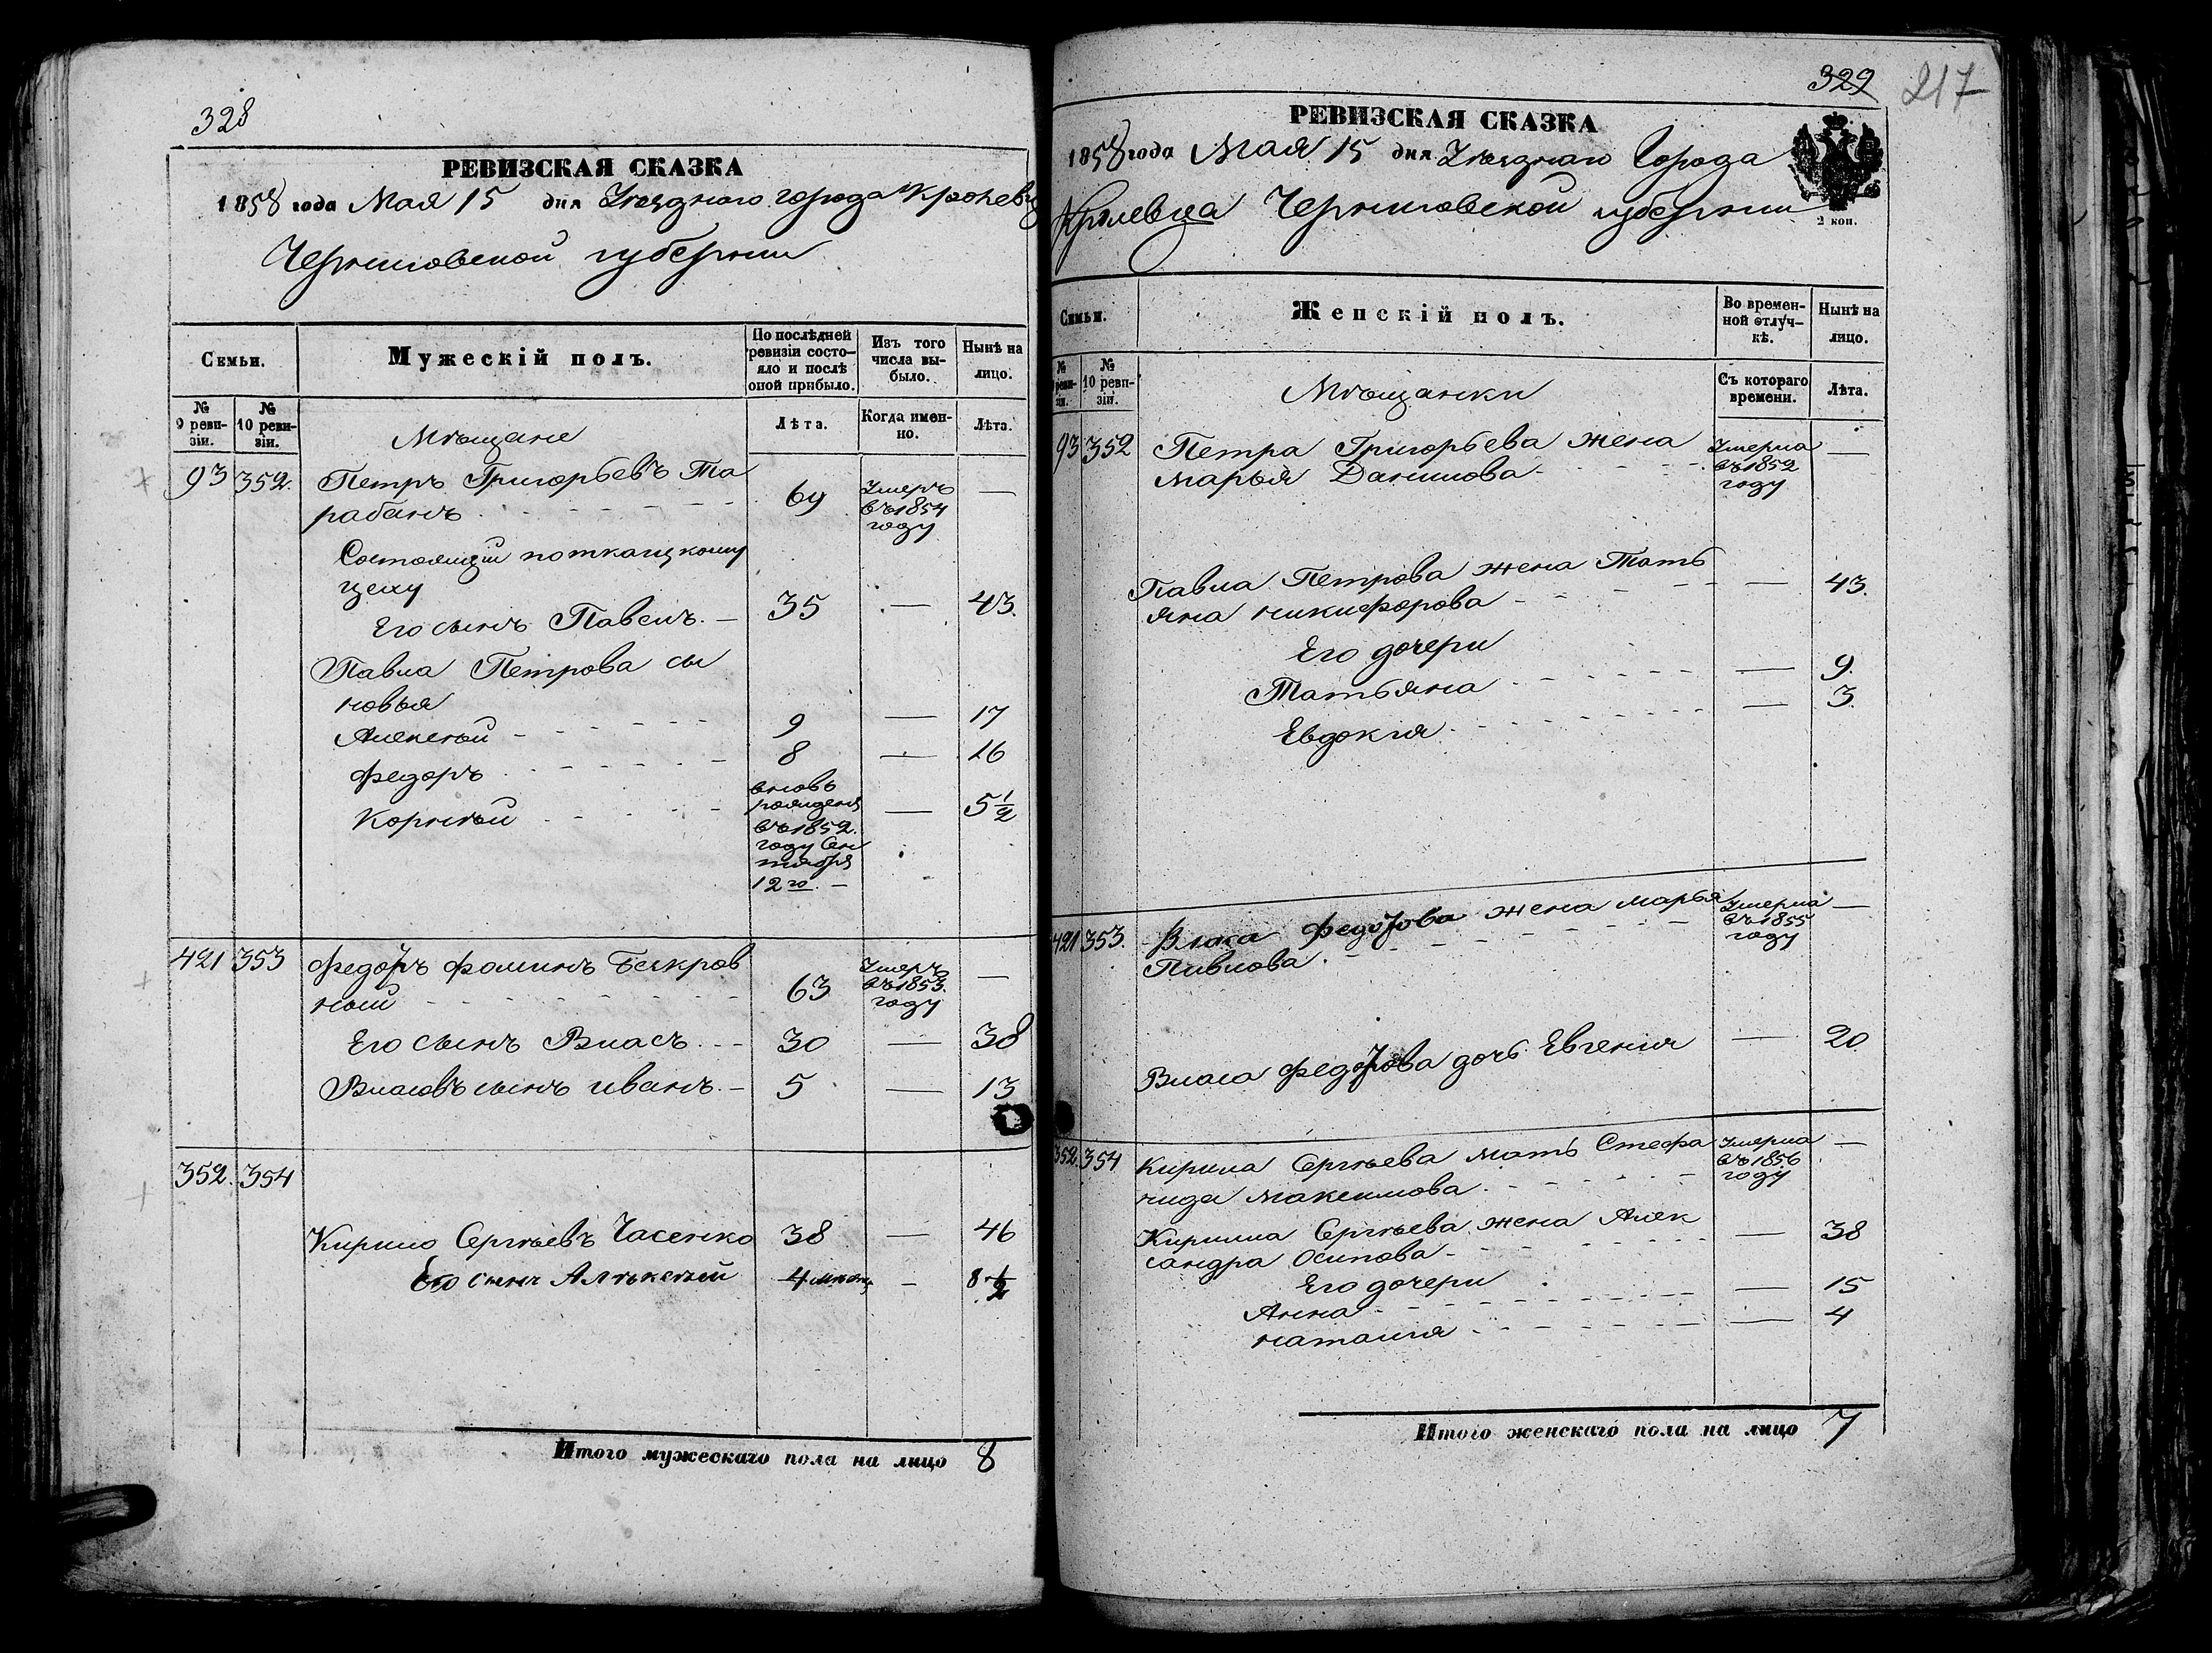 328
РЕВИЗСКАЯ СКАЗКА
1858 года Мая 15 дня Уѣзднаго города Кролевца
Черниговской губернiи
Семьи.
Мужескій полъ.
По послѣдней ревизіи состо-
яло и послѣ
оной прибыло.
Изъ того
числа вы-
было.
Нынѣ на
лицо.
№
9 реви-
зіи.
№
10 реви-
зіи.
Мѣщане
Лѣта.
Когда имен-
но.
Лѣта.
93 352. Петръ Григорьевъ Та
рабанъ 69 Умеръ
въ 1854
году —
Состоящiй по ткацкому
цеху
Его сынъ Павелъ. — 35 — 43.
Павла Петрова сы
новья
Алексѣй 9 — 17
Федоръ 8 — 16
Корнѣй вновь
рожденъ
въ 1852.
году Сен
тября
12го. — — 5 1/2
421 353 Федоръ Фоминъ Безкров
ный 63 Умеръ
въ 1853.
году —
Его сынъ Власъ 30 — 38
Власовъ сынъ иванъ. — 5 — 13
352. 354
Кирило Сергѣевъ Часенко 38 — 46
Его сынъ Алѣксѣй 4 мѣсяц — 8 1/2
Итого мужескаго пола на лицо 8
329 217
РЕВИЗСКАЯ СКАЗКА
1858 года Мая 15 дня Уѣзднаго Города
Кролевца Черниговской губернiи
2 коп.
Семьи.
Женскій полъ.
Во времен-
ной отлуч-
кѣ.
Нынѣ на
лицо.
№
реви-
зіи.
№
10 реви-
зіи.
Мѣщанки
Съ котораго
времени.
Лѣта.
93 352 Петра Григорьева жена
марья Данилова Умерла
въ 1852
году —
Павла Петрова жена Тать
яна никифорова — 43.
Его дочери
Татьяна — 9.
Евдокия — 3.
421 353. Власа Федорова жена марья
Павлова Умерла
въ 1855
году —
Власа Федорова дочь Евгенiя — 20.
352. 354 Кирила Сергѣева мать Стефа
нида максимова Умерла
въ 1856
году —
Кирилла Сергѣева жена Алек
сандра Осипова — 38
Его дочери
Анна — 15
наталия — 4
Итого женскаго пола на лицо 7